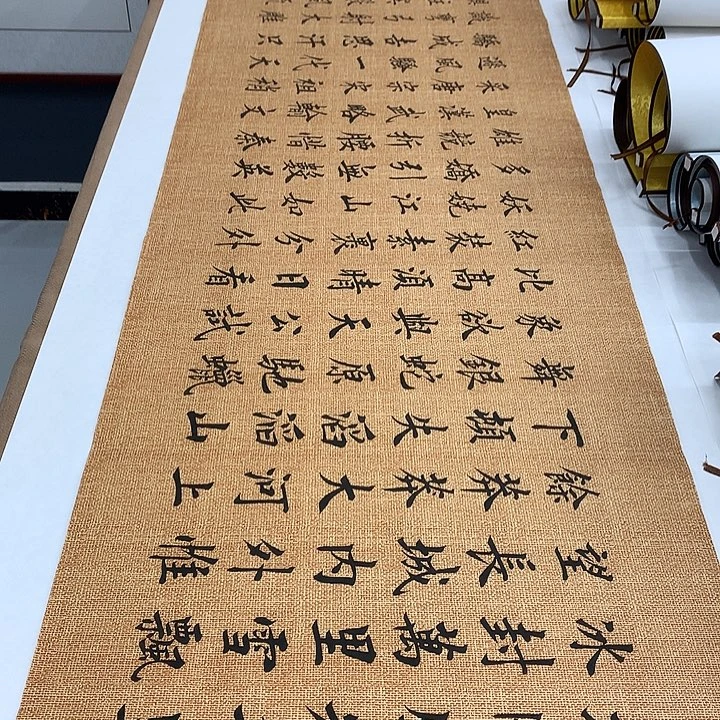 冰封萬里雪飄
望長城內外惟
餘莽莽大河上
下頓失滔滔山
舞銀蛇原馳蠟
象欲與天公試
比高須晴日看
紅裝素裹分外
妖嬈江山如此
多嬌引無數英
雄競折腰惜秦
皇漢武略輸文
采唐宗宋祖稍
遜風騷一代天
驕成吉思汗只
識彎弓射大雕